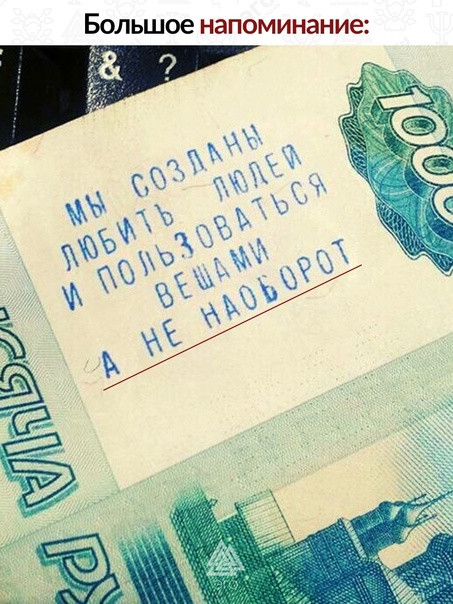 Большое напоминание:
& ?
1000
МЫ СОЗДАНЫ
ЛЮБИТЬ ЛЮДЕЙ
И ПОЛЬЗОВАТЬСЯ
ВЕЩАМИ
А НЕ НАОБОРОТ
СЯЧА
РУ